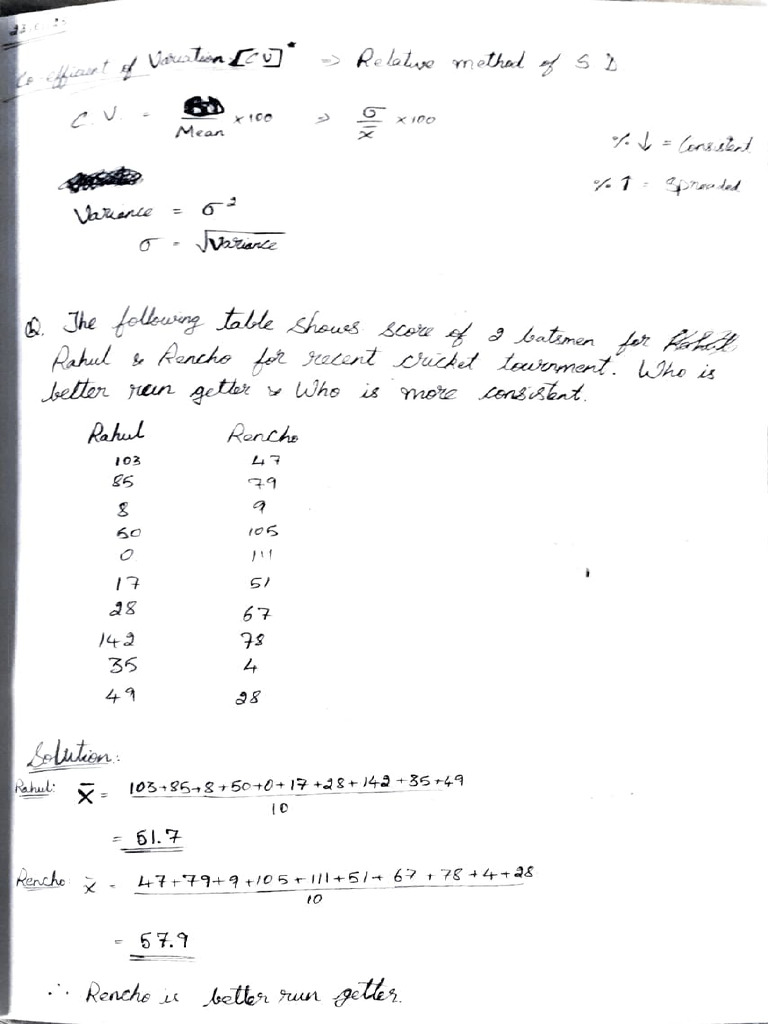 Co-efficient of Variation [CV]* => Relative method of S D
C.V. = SD/Mean × 100 => σ/x̄ × 100
% ↓ = Consistent
% ↑ = Spreaded
Variance = σ²
σ = √Variance
Q. The following table shows score of 2 batsmen for
Rahul & Rencho for recent cricket tournment. Who is
better run getter & Who is more consistent.
Rahul Rencho
103 47
85 79
8 9
50 105
0 111
17 51
28 67
142 78
35 4
49 28
Solution:
Rahul: x̄ = 103+85+8+50+0+17+28+142+35+49
10
= 51.7
Rencho x̄ = 47+79+9+105+111+51+67+78+4+28
10
= 57.9
∴ Rencho is better run getter.